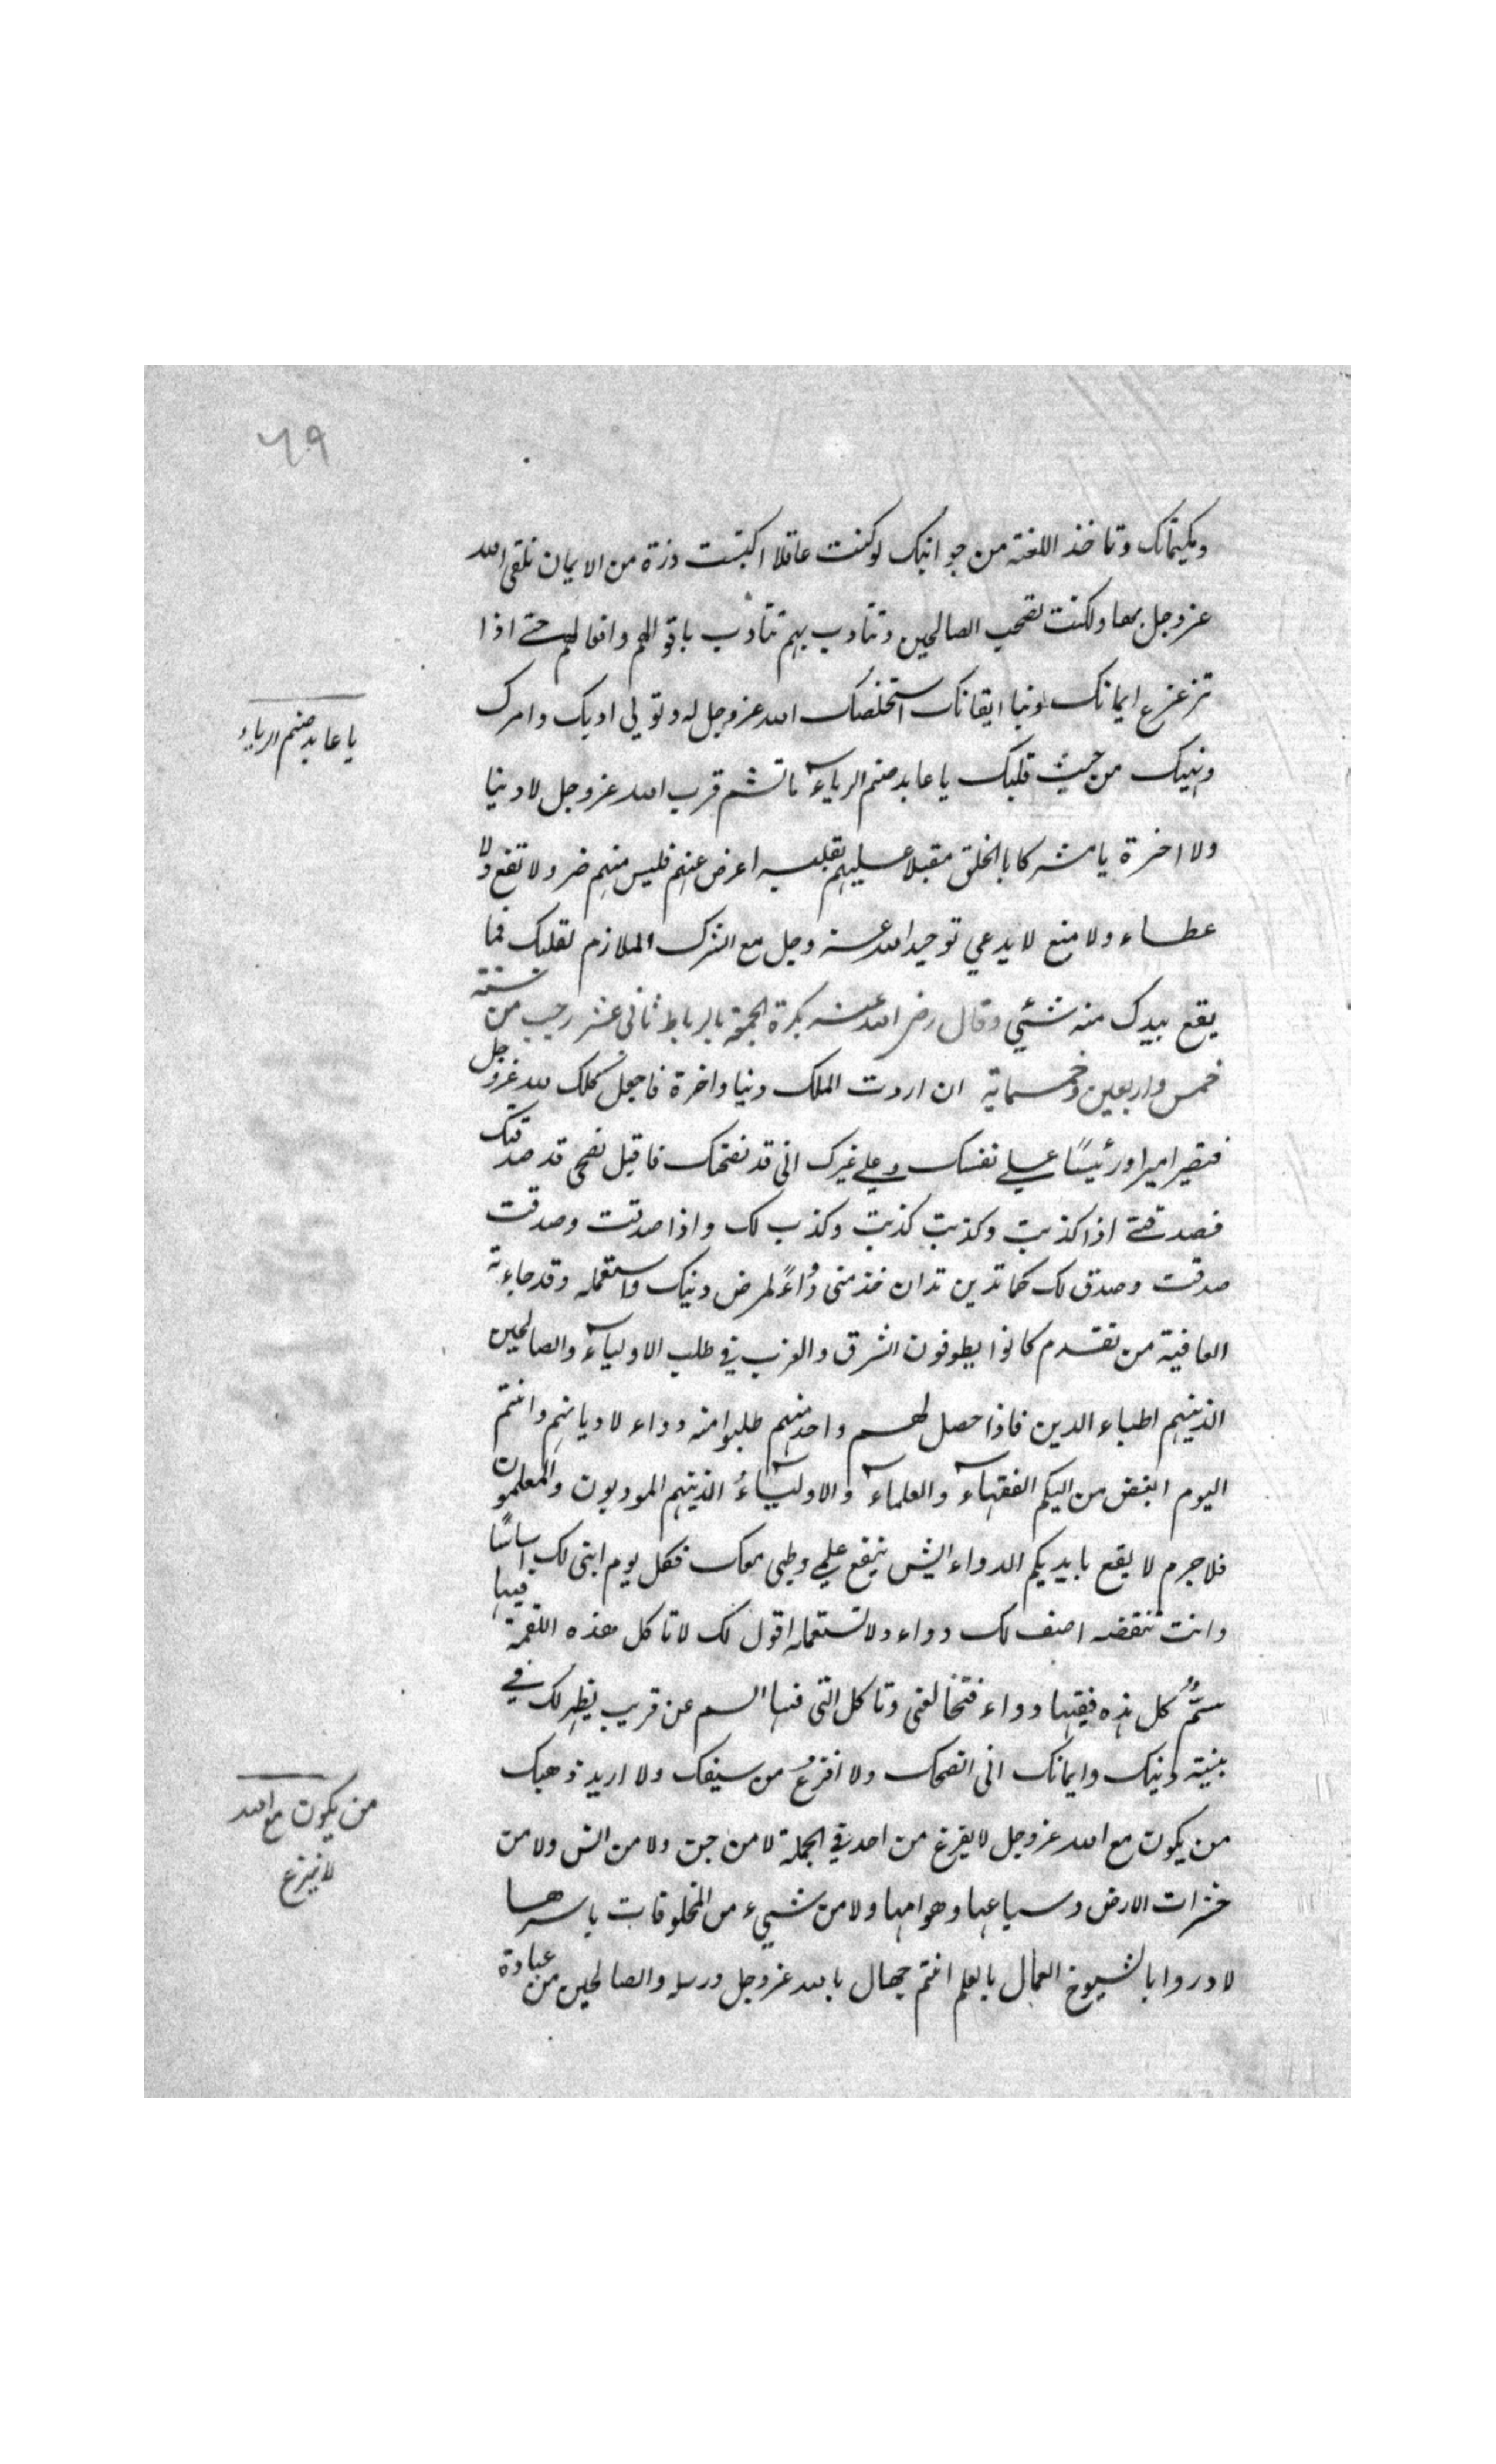 ٦٩
ويكتمانك وتاخذ اللعنة من جوانبك لو كنت عاقلا اكتبت ذرة من الايمان تلقى الله
عز وجل بها ولكنت تصحب الصالحين وتتادب بهم تتادب باقوالهم وافعالهم حتى اذا
تزعزع ايمانك ونيا ايقانك استخلصك الله عز وجل له وتولى ادبك وامرك
ونهيك من حيث قلبك يا عابد صنم الرياء ما تشم قرب الله عز وجل لا دنيا
يا عابد صنم الرياء
ولا اخرة يا مشركا بالخلق مقبلا عليهم بقلبه اعرض عنهم فليس منهم ضر ولا نفع ولا
عطاء ولا منع لا يدعي توحيد الله عز وجل مع الشرك الملازم لقلبك فما
يقع بيدك منه شئي وقال رضي الله عنه بكرة الجمعة بالرباط ثاني عشر رجب من سنة
خمس واربعين وخمسماية ان اردت الملك دنيا واخرة فاجعل كلك لله عز وجل
فتصير اميرا ورئيسًا على نفسك وعلى غيرك اني قد نصحتك فاقبل نصحي قد صدقتك
فصدقني اذا كذبت وكذبت كذبت وكذب لك واذا صدقت وصدقت
صدقت وصدق لك كما تدين تدان خذ مني دواءً لمرض دينك واستعمله وقد جاءته
العافية من تقدم كانوا يطوفون الشرق والغرب في طلب الاولياء والصالحين
الذينهم اطباء الدين فاذا حصل لهم واحد منهم طلبوا منه دواء لاديانهم وانتم
اليوم ابغض من اليكم الفقهاء والعلماء والاولياء الذينهم المودبون والمعلمون
فلا جرم لا يقع بايديكم الدواء ايش ينفع علمي وطبي معك فكل يوم ابني لك اساسًا
وانت تنقضه اصف لك دواء ولا تستعمله اقول لك لا تاكل هذه اللقمة فيها
سمٌّ كل هذه فيها دواء فتخالفني وتاكل التي فيها السم عن قريب يظهر لك في
بنية دينك وايمانك اني انصحك ولا افزع من سيفك ولا اريد ذهبك
من يكون مع الله عز وجل لا يفزع من احد في الجملة لا من جن ولا من انس ولا من
من يكون مع الله
لا يفزع
حشرات الارض وسباعها وهوامها ولا من شيىء من المخلوقات باسرها
لا دروا بالشيوخ العمال بالعلم انتم جهال بالله عز وجل ورسله والصالحين من عبادة